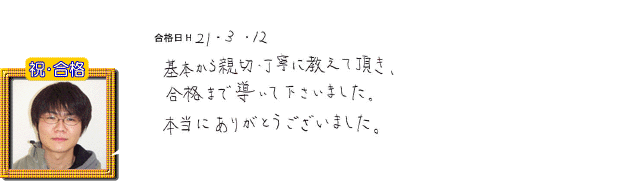 合格日 H 21・3・12
祝・合格
基本から親切・丁寧に教えて頂き、
合格まで導いて下さいました。
本当にありがとうございました。